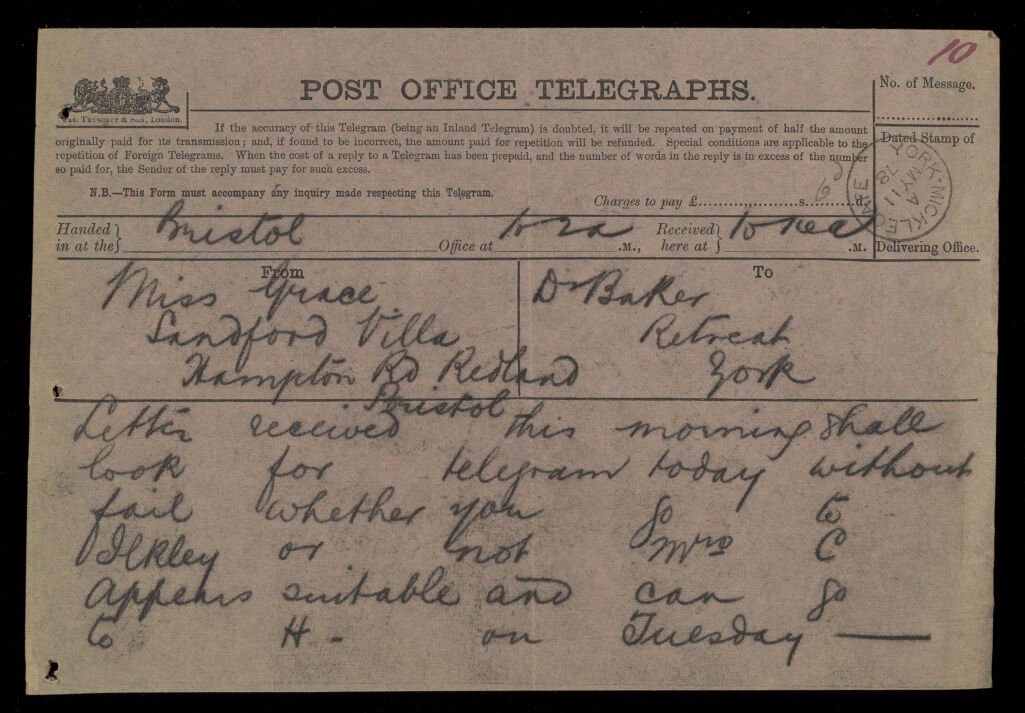 10
POST OFFICE TELEGRAPHS.
No. of Message.
TRUSCOTT & SON, LONDON.
If the accuracy of this Telegram (being an Inland Telegram) is doubted, it will be repeated on payment of half the amount
originally paid for its transmission; and, if found to be incorrect, the amount paid for repetition will be refunded. Special conditions are applicable to the
repetition of Foreign Telegrams. When the cost of a reply to a Telegram has been prepaid, and the number of words in the reply is in excess of the number
so paid for, the Sender of the reply must pay for such excess.
Dated Stamp of
YORK·MICKLEGATE
A
MY 11
78
N.B.—This Form must accompany any inquiry made respecting this Telegram.
Charges to pay £ s. d.
6d
Handed in at the Bristol Office at .M., Received here at .M.
Delivering Office.
From To
Miss Grace Dr Baker
Sandford Villa Retreat
Hampton Rd Redland York
Bristol
Letter received this morning shall
look for telegram today without
fail whether you go to
Ilkley or not Mrs C
appears suitable and can go
to H - on Tuesday —